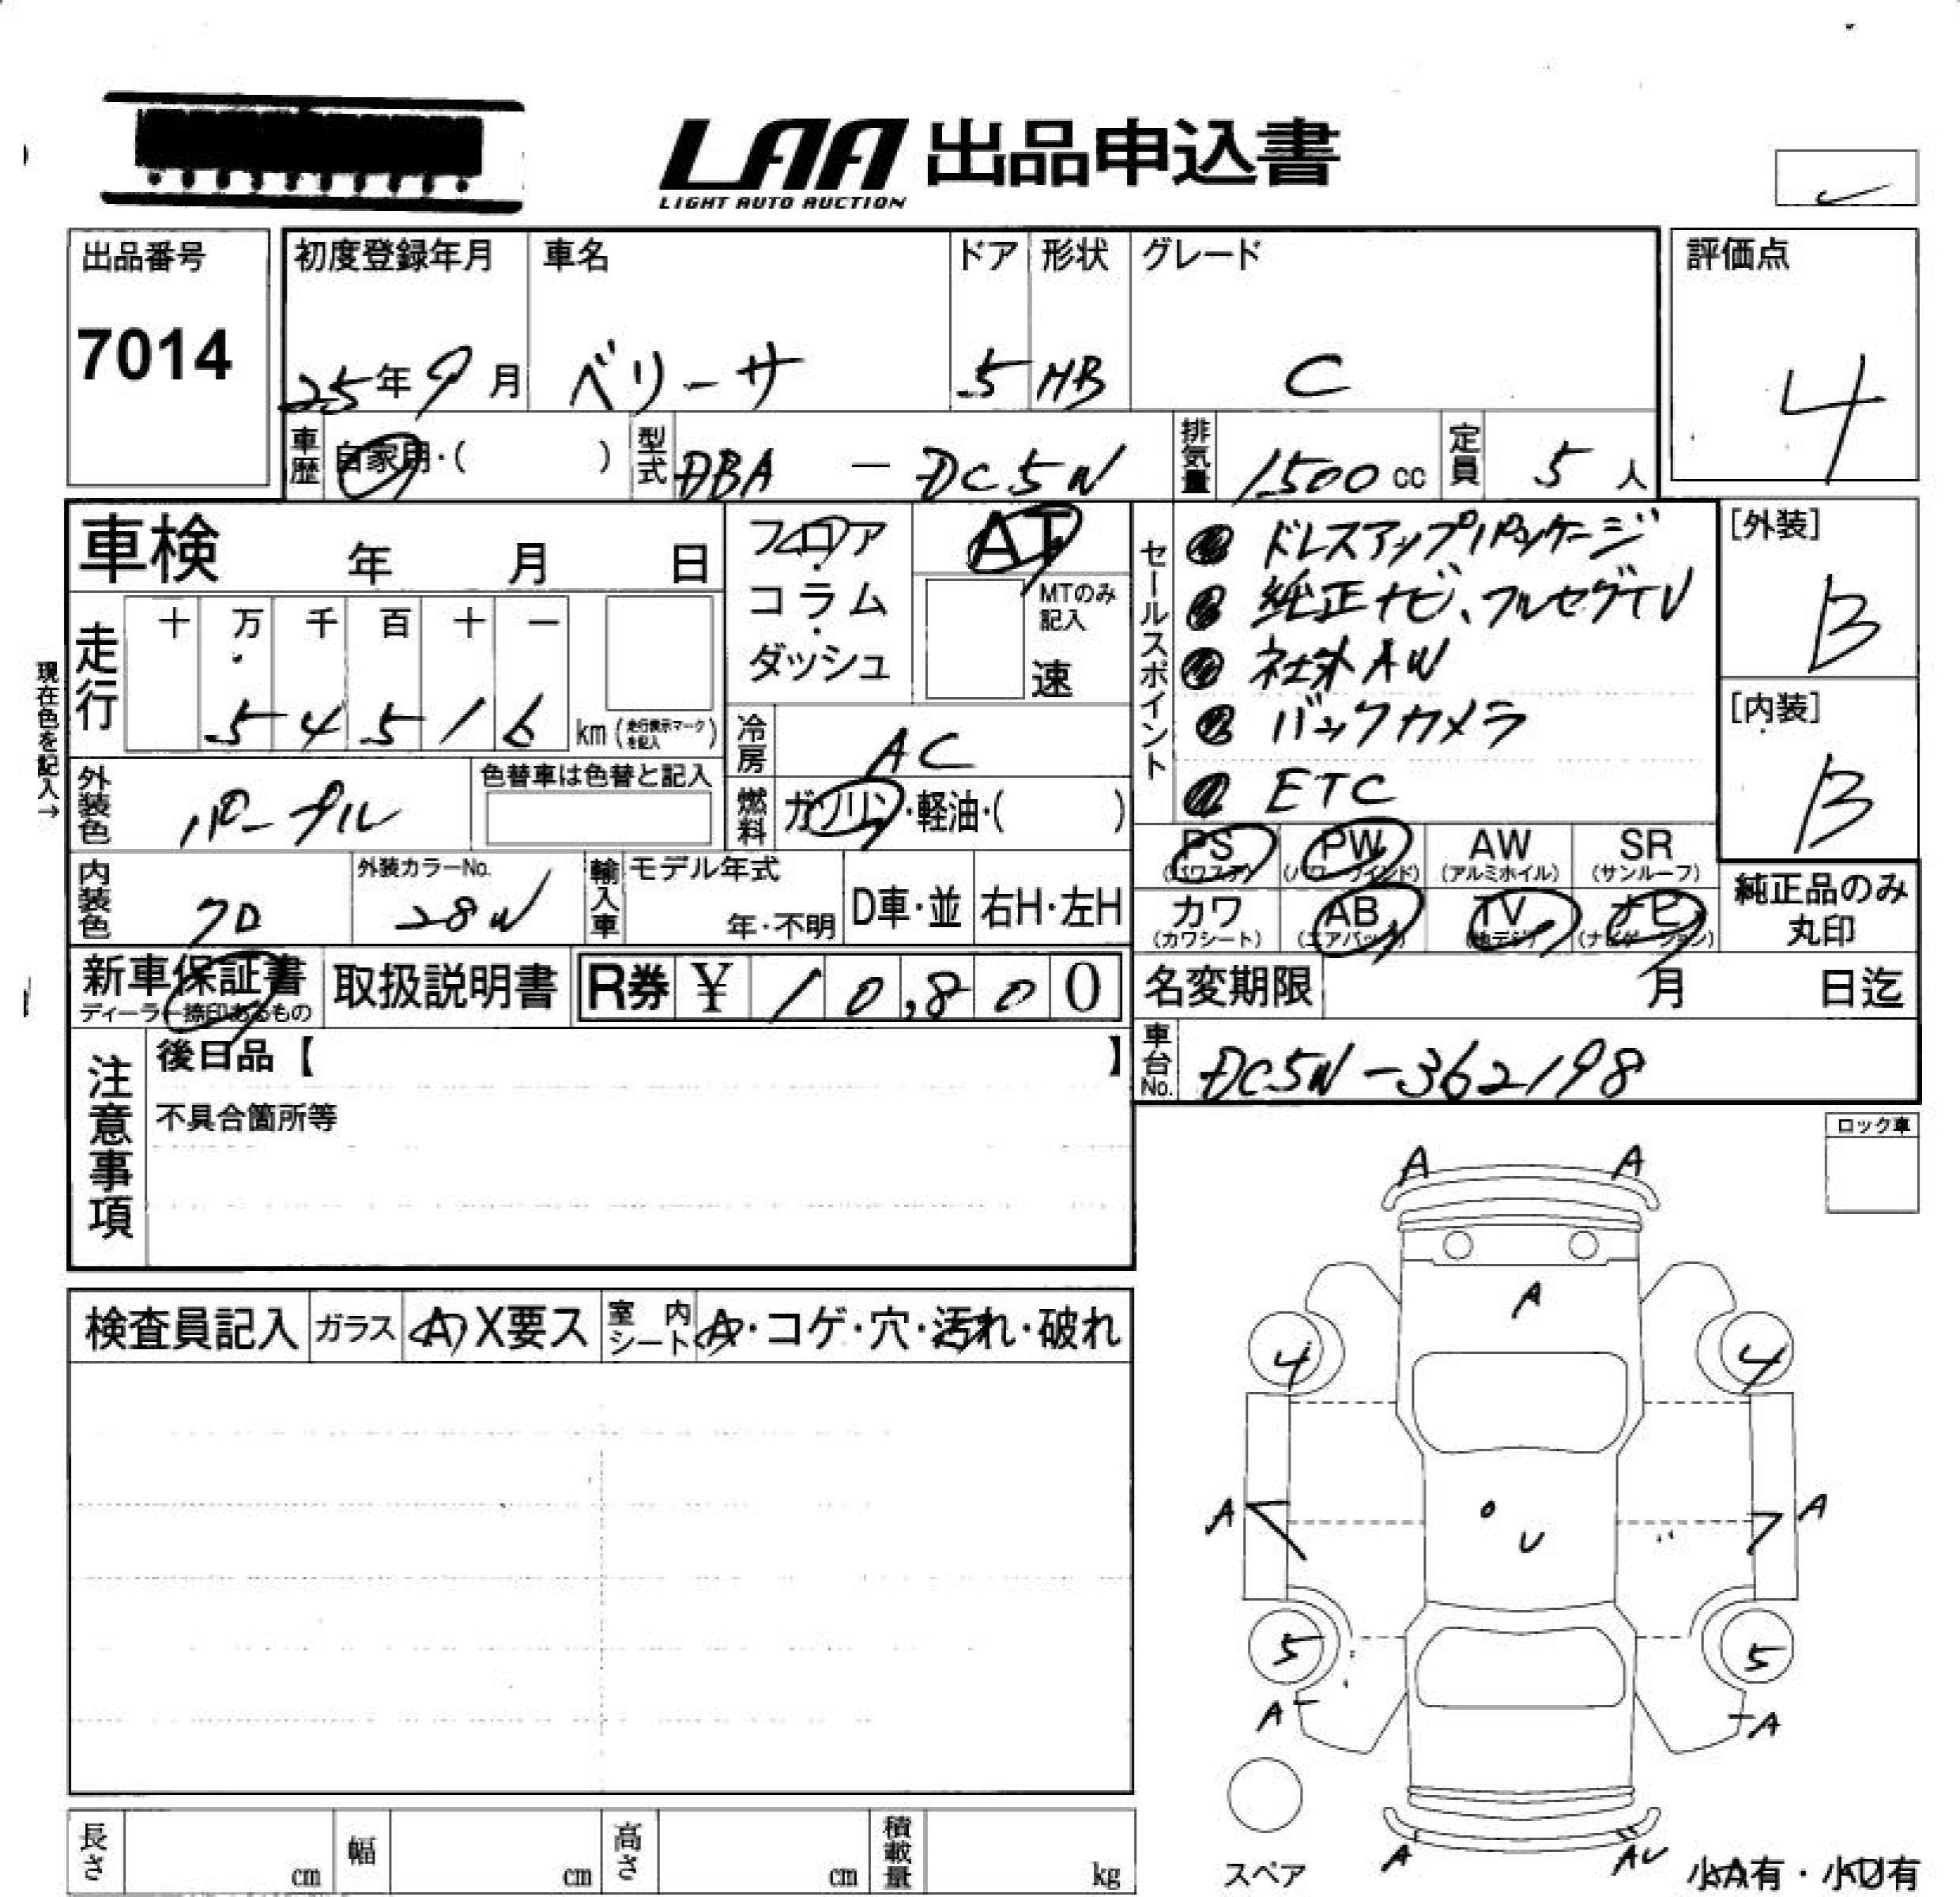 LAA 出品申込書
LIGHT AUTO AUCTION
出品番号
7014
初度登録年月
25年9月
車名
ベリーサ
ドア
5
形状
HB
グレード
C
評価点
4
車歴
自家用・( )
型式
DBA - DC5W
排気量
1500 cc
定員
5 人
車検 年 月 日
フロア
・
コラム
・
ダッシュ
AT
MTのみ
記入
速
セールスポイント
ドレスアップパッケージ
純正ナビ、フルセグTV
社外AW
バックカメラ
ETC
[外装]
B
[内装]
B
現在色を記入→
走行
十 万 千 百 十 一
5 4 5 1 6
km (走行表示マークを記入)
冷房
AC
外装色
パープル
色替車は色替と記入
燃料
ガソリン・軽油・( )
PS
(パワステ)
PW
(パワーウインド)
AW
(アルミホイル)
SR
(サンルーフ)
内装色
クロ
外装カラーNo.
28W
輸入車
モデル年式
年・不明
D車・並
右H・左H
カワ
(カワシート)
AB
(エアバック)
TV
(地デジ)
ナビ
(ナビゲーション)
純正品のみ
丸印
新車保証書
ディーラー捺印あるもの
取扱説明書
R券 ¥ 10,800
名変期限 月 日迄
注意事項
後日品【 】
不具合箇所等
車台No.
DC5W-362198
ロック車
検査員記入
ガラス
A X要ス
室内シート
A・コゲ・穴・汚れ・破れ
A A
A
4 4
A A
U
5 5
A A
スペア
A AU
小A有・小U有
長さ cm
幅 cm
高さ cm
積載量 kg